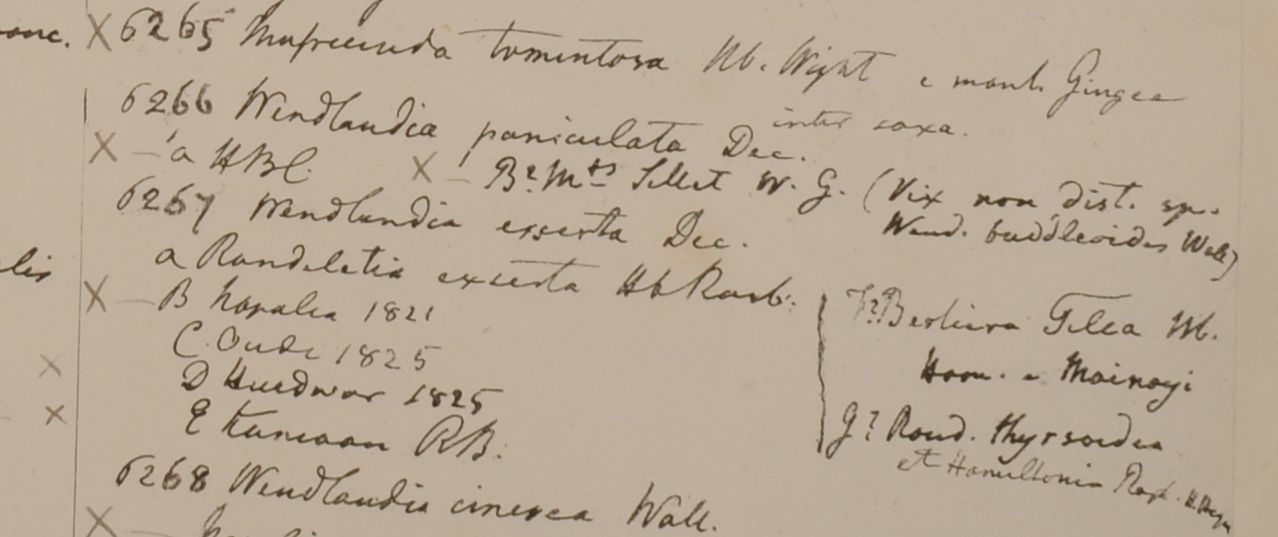 onc.
X 6265 Mussaenda tomentosa Hb. Wight e mont. Gingee
inter saxa.
6266 Wendlandia paniculata Dec.
X — a HBC. X — B? Mts Sillet W. G. (Vix non dist. sp.
Wend. buddleoides Wall)
6267 Wendlandia exserta Dec.
a Rondeletia exserta Hb Roxb.
lis
X — B Napalia 1821
C. Oude 1825
X D Hurdwar 1825
X E Kamaon RB.
F? Tilea Hb.
Ham. e
G? Rond. thyrsoidea
et Hamiltonia
6268 Wendlandia cinerea Wall.
X —